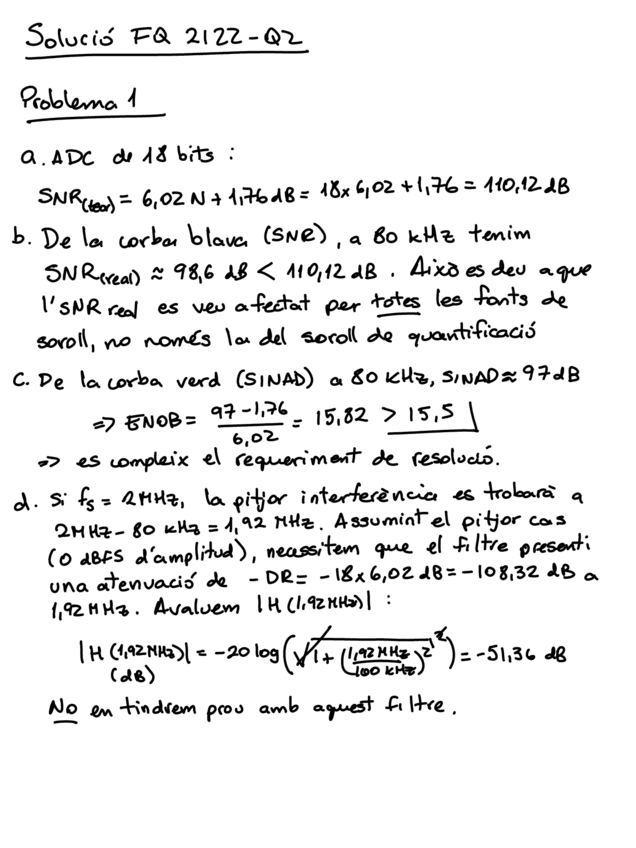 Solució FQ 2122-Q2
Problema 1
a. ADC de 18 bits :
SNR(teor) = 6,02 N + 1,76 dB = 18 x 6,02 + 1,76 = 110,12 dB
b. De la corba blava (SNR), a 80 kHz tenim
SNR(real) ≈ 98,6 dB < 110,12 dB. Això es deu a que
l'SNR real es veu afectat per totes les fonts de
soroll, no només la del soroll de quantificació
c. De la corba verd (SINAD) a 80 kHz, SINAD ≈ 97 dB
=> ENOB = (97 - 1,76) / 6,02 = 15,82 > 15,5
=> es compleix el requeriment de resolució.
d. Si fs = 2 MHz, la pitjor interferència es trobarà a
2 MHz - 80 kHz = 1,92 MHz. Assumint el pitjor cas
(0 dBFS d'amplitud), necessitem que el filtre presenti
una atenuació de - DR = - 18 x 6,02 dB = -108,32 dB a
1,92 MHz. Avaluem |H(1,92 MHz)| :
|H(1,92 MHz)| = -20 log (√(1 + (1,92 MHz / 100 kHz)²)²) = -51,36 dB
(dB)
No en tindrem prou amb aquest filtre.